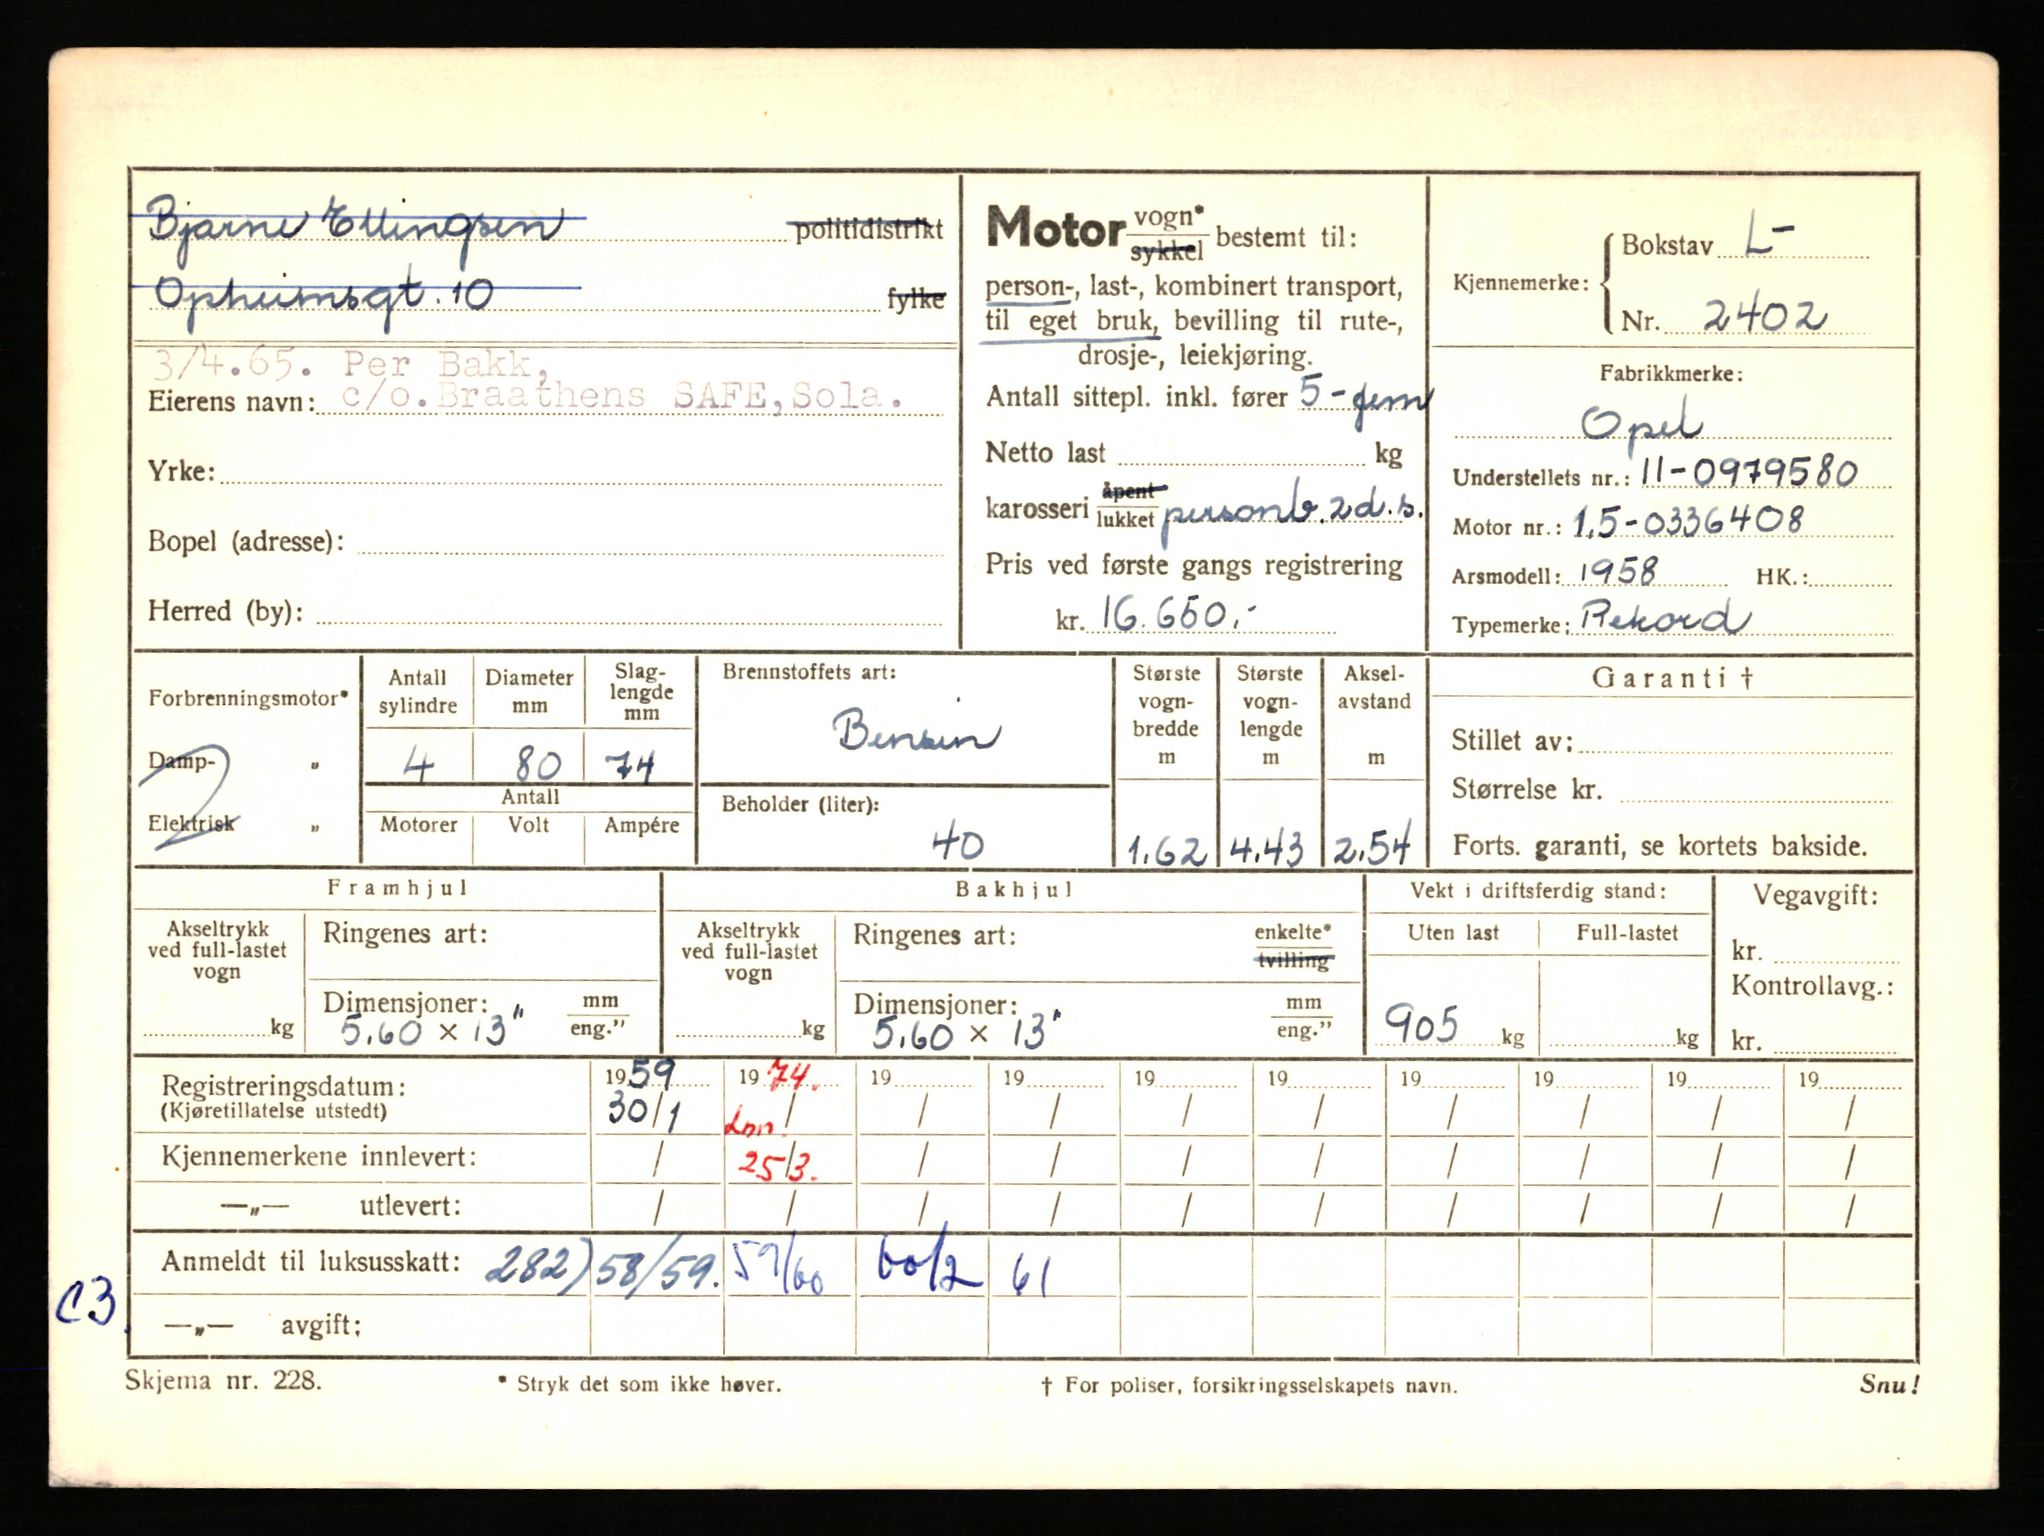 Bjarne Ellingsen politidistrikt
Opheimsgt. 10 fylke
3/4.65. Per Bakk,
Eierens navn: c/o. Braathens SAFE, Sola.
Yrke:
Bopel (adresse):
Herred (by):
Motor vogn* sykkel bestemt til:
person-, last-, kombinert transport,
til eget bruk, bevilling til rute-,
drosje-, leiekjøring.
Antall sittepl. inkl. fører 5 - fem
Netto last kg
karosseri åpent lukket personb. 2 d. s.
Pris ved første gangs registrering
kr. 16.650,-
Kjennemerke: Bokstav L-
Nr. 2402
Fabrikkmerke:
Opel
Understellets nr.: 11-0979580
Motor nr.: 1,5-0336408
Arsmodell: 1958 HK.:
Typemerke: Rekord
Forbrenningsmotor*
Damp- „
Elektrisk „
Antall sylindre Diameter mm Slag-lengde mm
4 80 74
Antall
Motorer Volt Ampére
Brennstoffets art:
Bensin
Beholder (liter):
40
Største vogn-bredde m Største vogn-lengde m Aksel-avstand m
1.62 4.43 2.54
Garanti †
Stillet av:
Størrelse kr.
Forts. garanti, se kortets bakside.
Framhjul
Akseltrykk ved full-lastet vogn
kg
Ringenes art:
Dimensjoner: mm eng."
5.60 × 13"
Bakhjul
Akseltrykk ved full-lastet vogn
kg
Ringenes art: enkelte* tvilling
Dimensjoner: mm eng."
5.60 × 13"
Vekt i driftsferdig stand:
Uten last Full-lastet
905 kg kg
Vegavgift:
kr.
Kontrollavg.:
kr.
Registreringsdatum: 1959 1974. 19 19 19 19 19 19 19 19
(Kjøretillatelse utstedt) 30/1 / / / / / / / / /
Kjennemerkene innlevert: / 25/3. / / / / / / / /
—„— utlevert: / / / / / / / / / /
Anmeldt til luksusskatt: 282) 58/59. 59/60 60/2 61
C3.
—„— avgift:
Skjema nr. 228. * Stryk det som ikke høver. † For poliser, forsikringsselskapets navn. Snu!